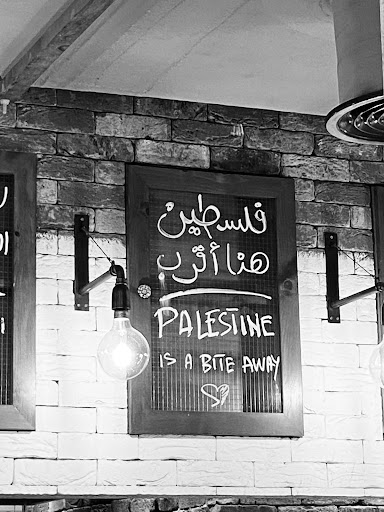 فلسطين
هنا أقرب
PALESTINE
IS A BITE AWAY